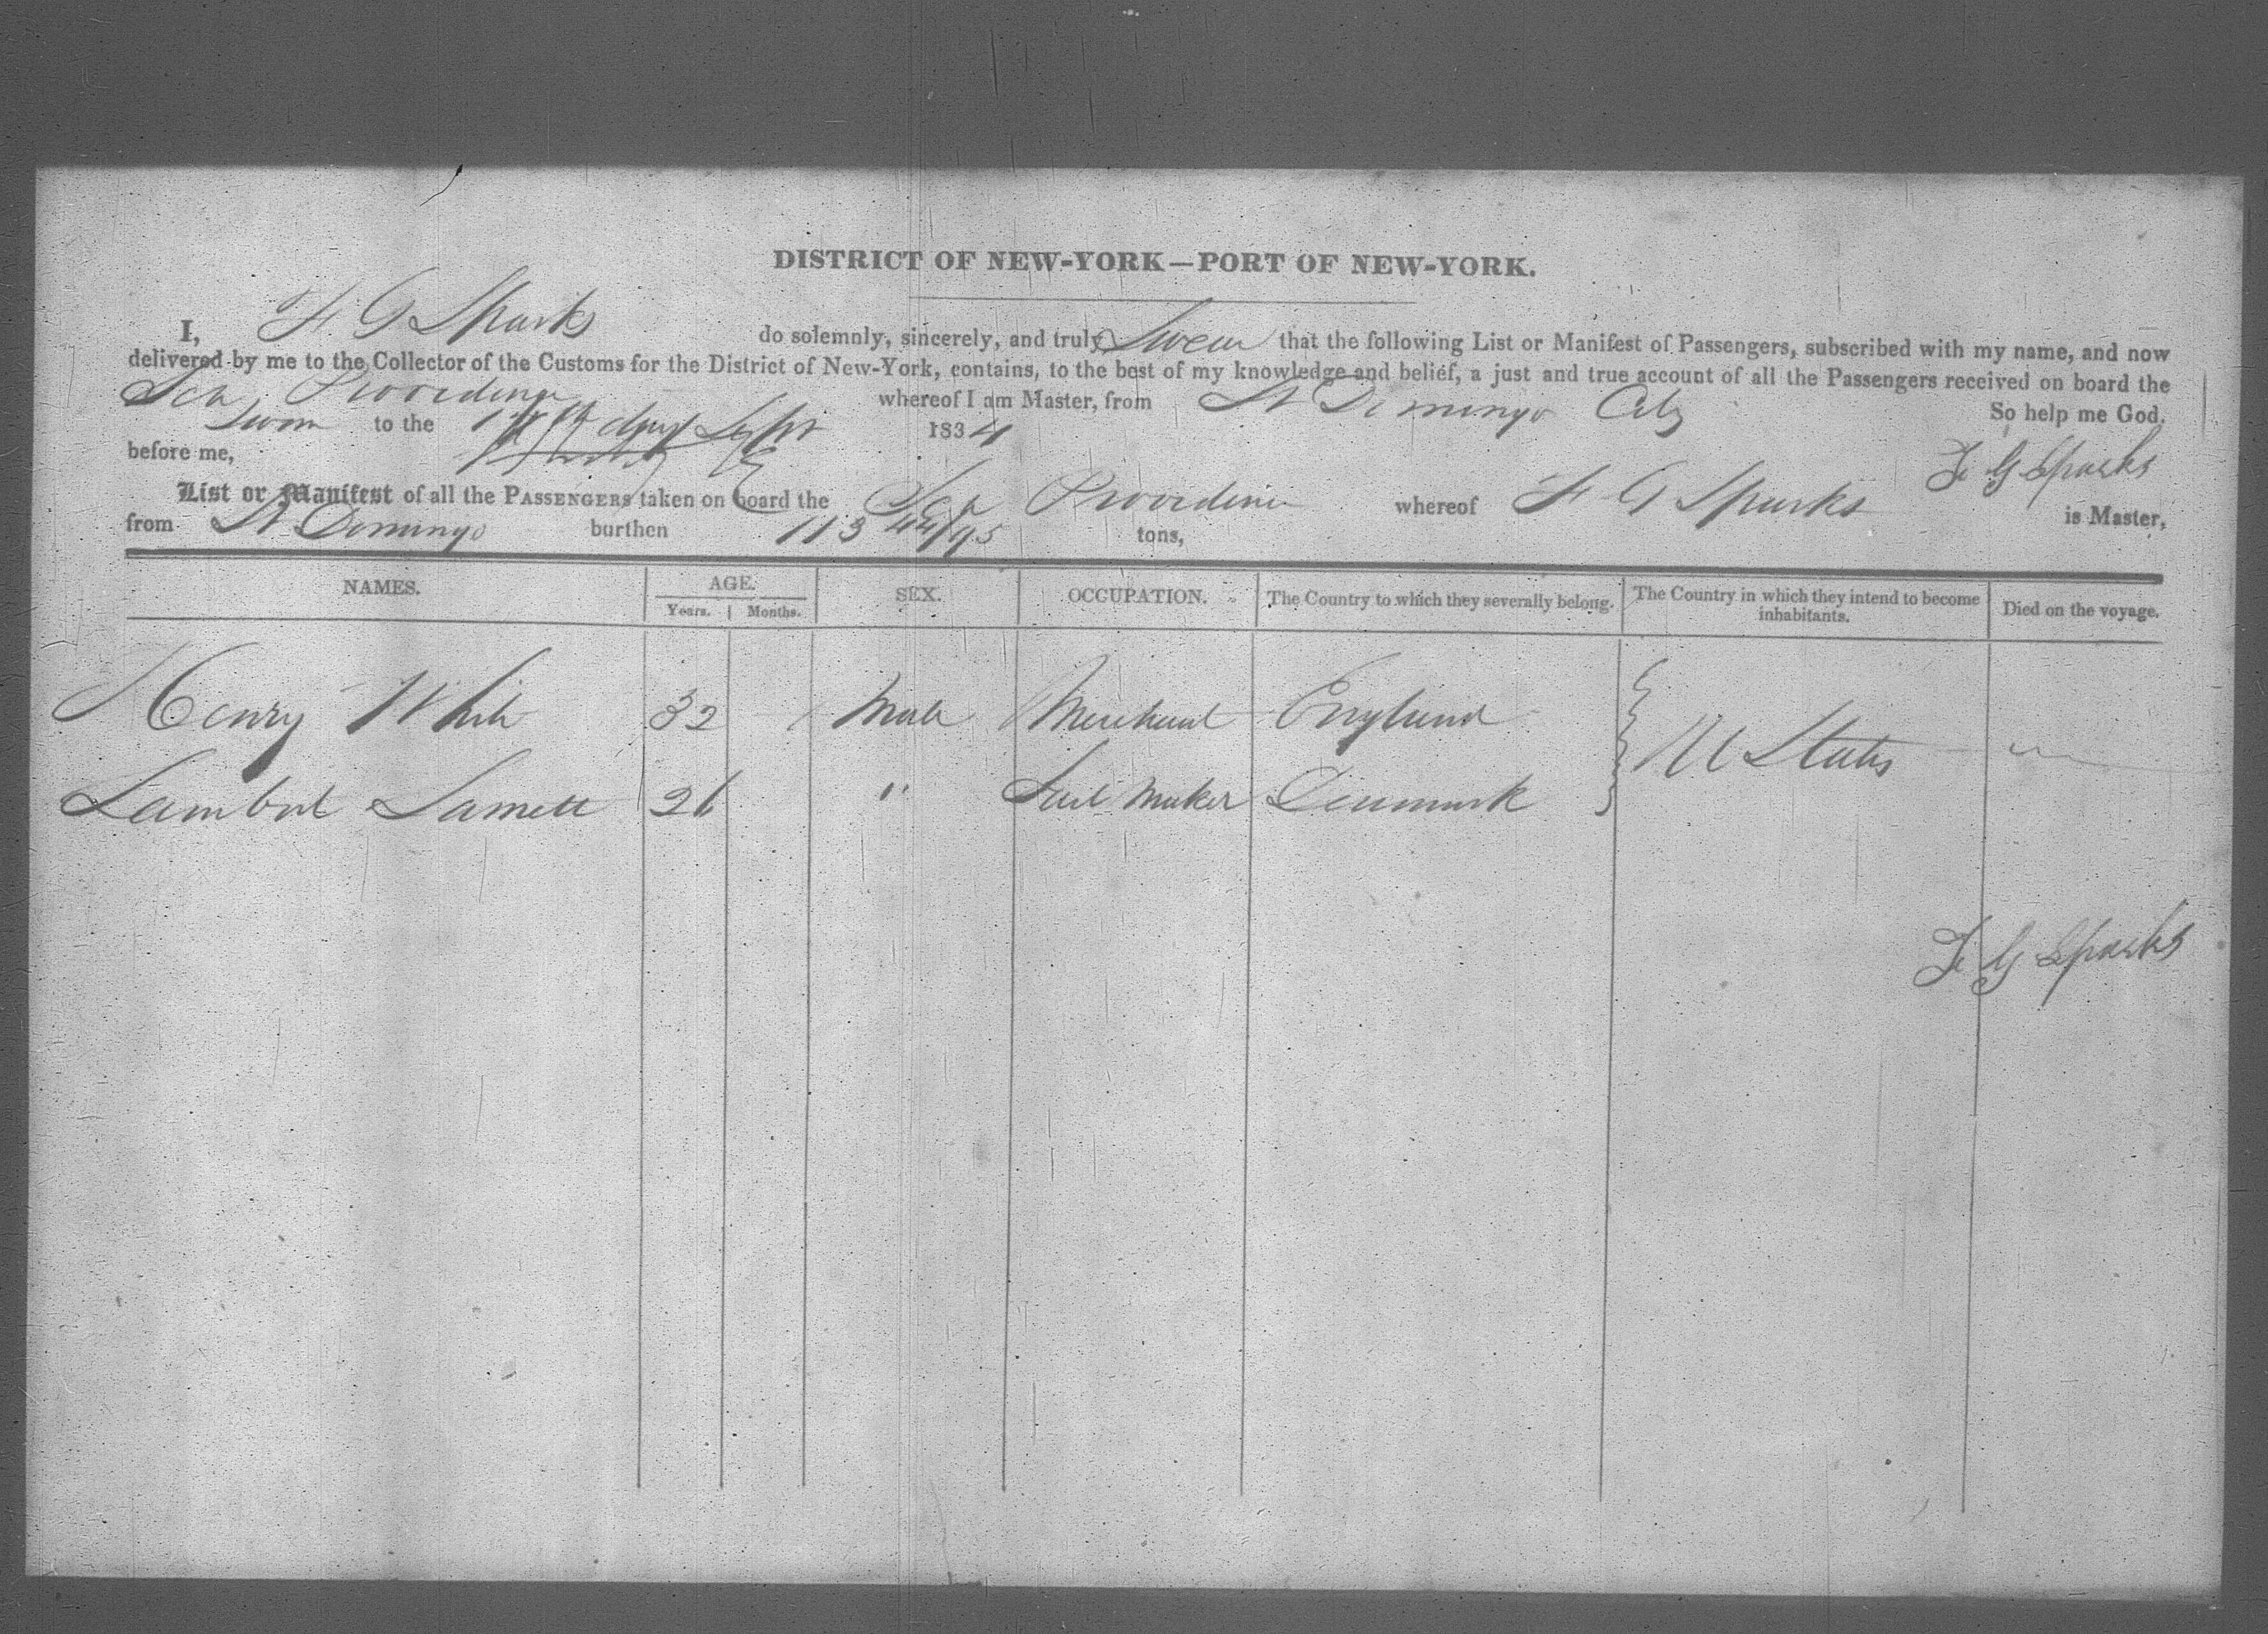 DISTRICT OF NEW-YORK—PORT OF NEW-YORK.
I, F. G Sparks do solemnly, sincerely, and truly Swear that the following List or Manifest of Passengers, subscribed with my name, and now
delivered by me to the Collector of the Customs for the District of New-York, contains, to the best of my knowledge and belief, a just and true account of all the Passengers received on board the
Sch Providence whereof I am Master, from St Domingo City So help me God.
Sworn to the Sept 1834
before me, F G Sparks
List or Manifest of all the PASSENGERS taken on board the Sch Providence whereof F G Sparks is Master,
from St Domingo burthen 113 44/95 tons,
NAMES. AGE. SEX. OCCUPATION. The Country to which they severally belong. The Country in which they intend to become inhabitants. Died on the voyage.
Years. Months.
Henry White 32 Male Merchant England U States
Lambert 26 " Sail Maker Denmark
F G Sparks